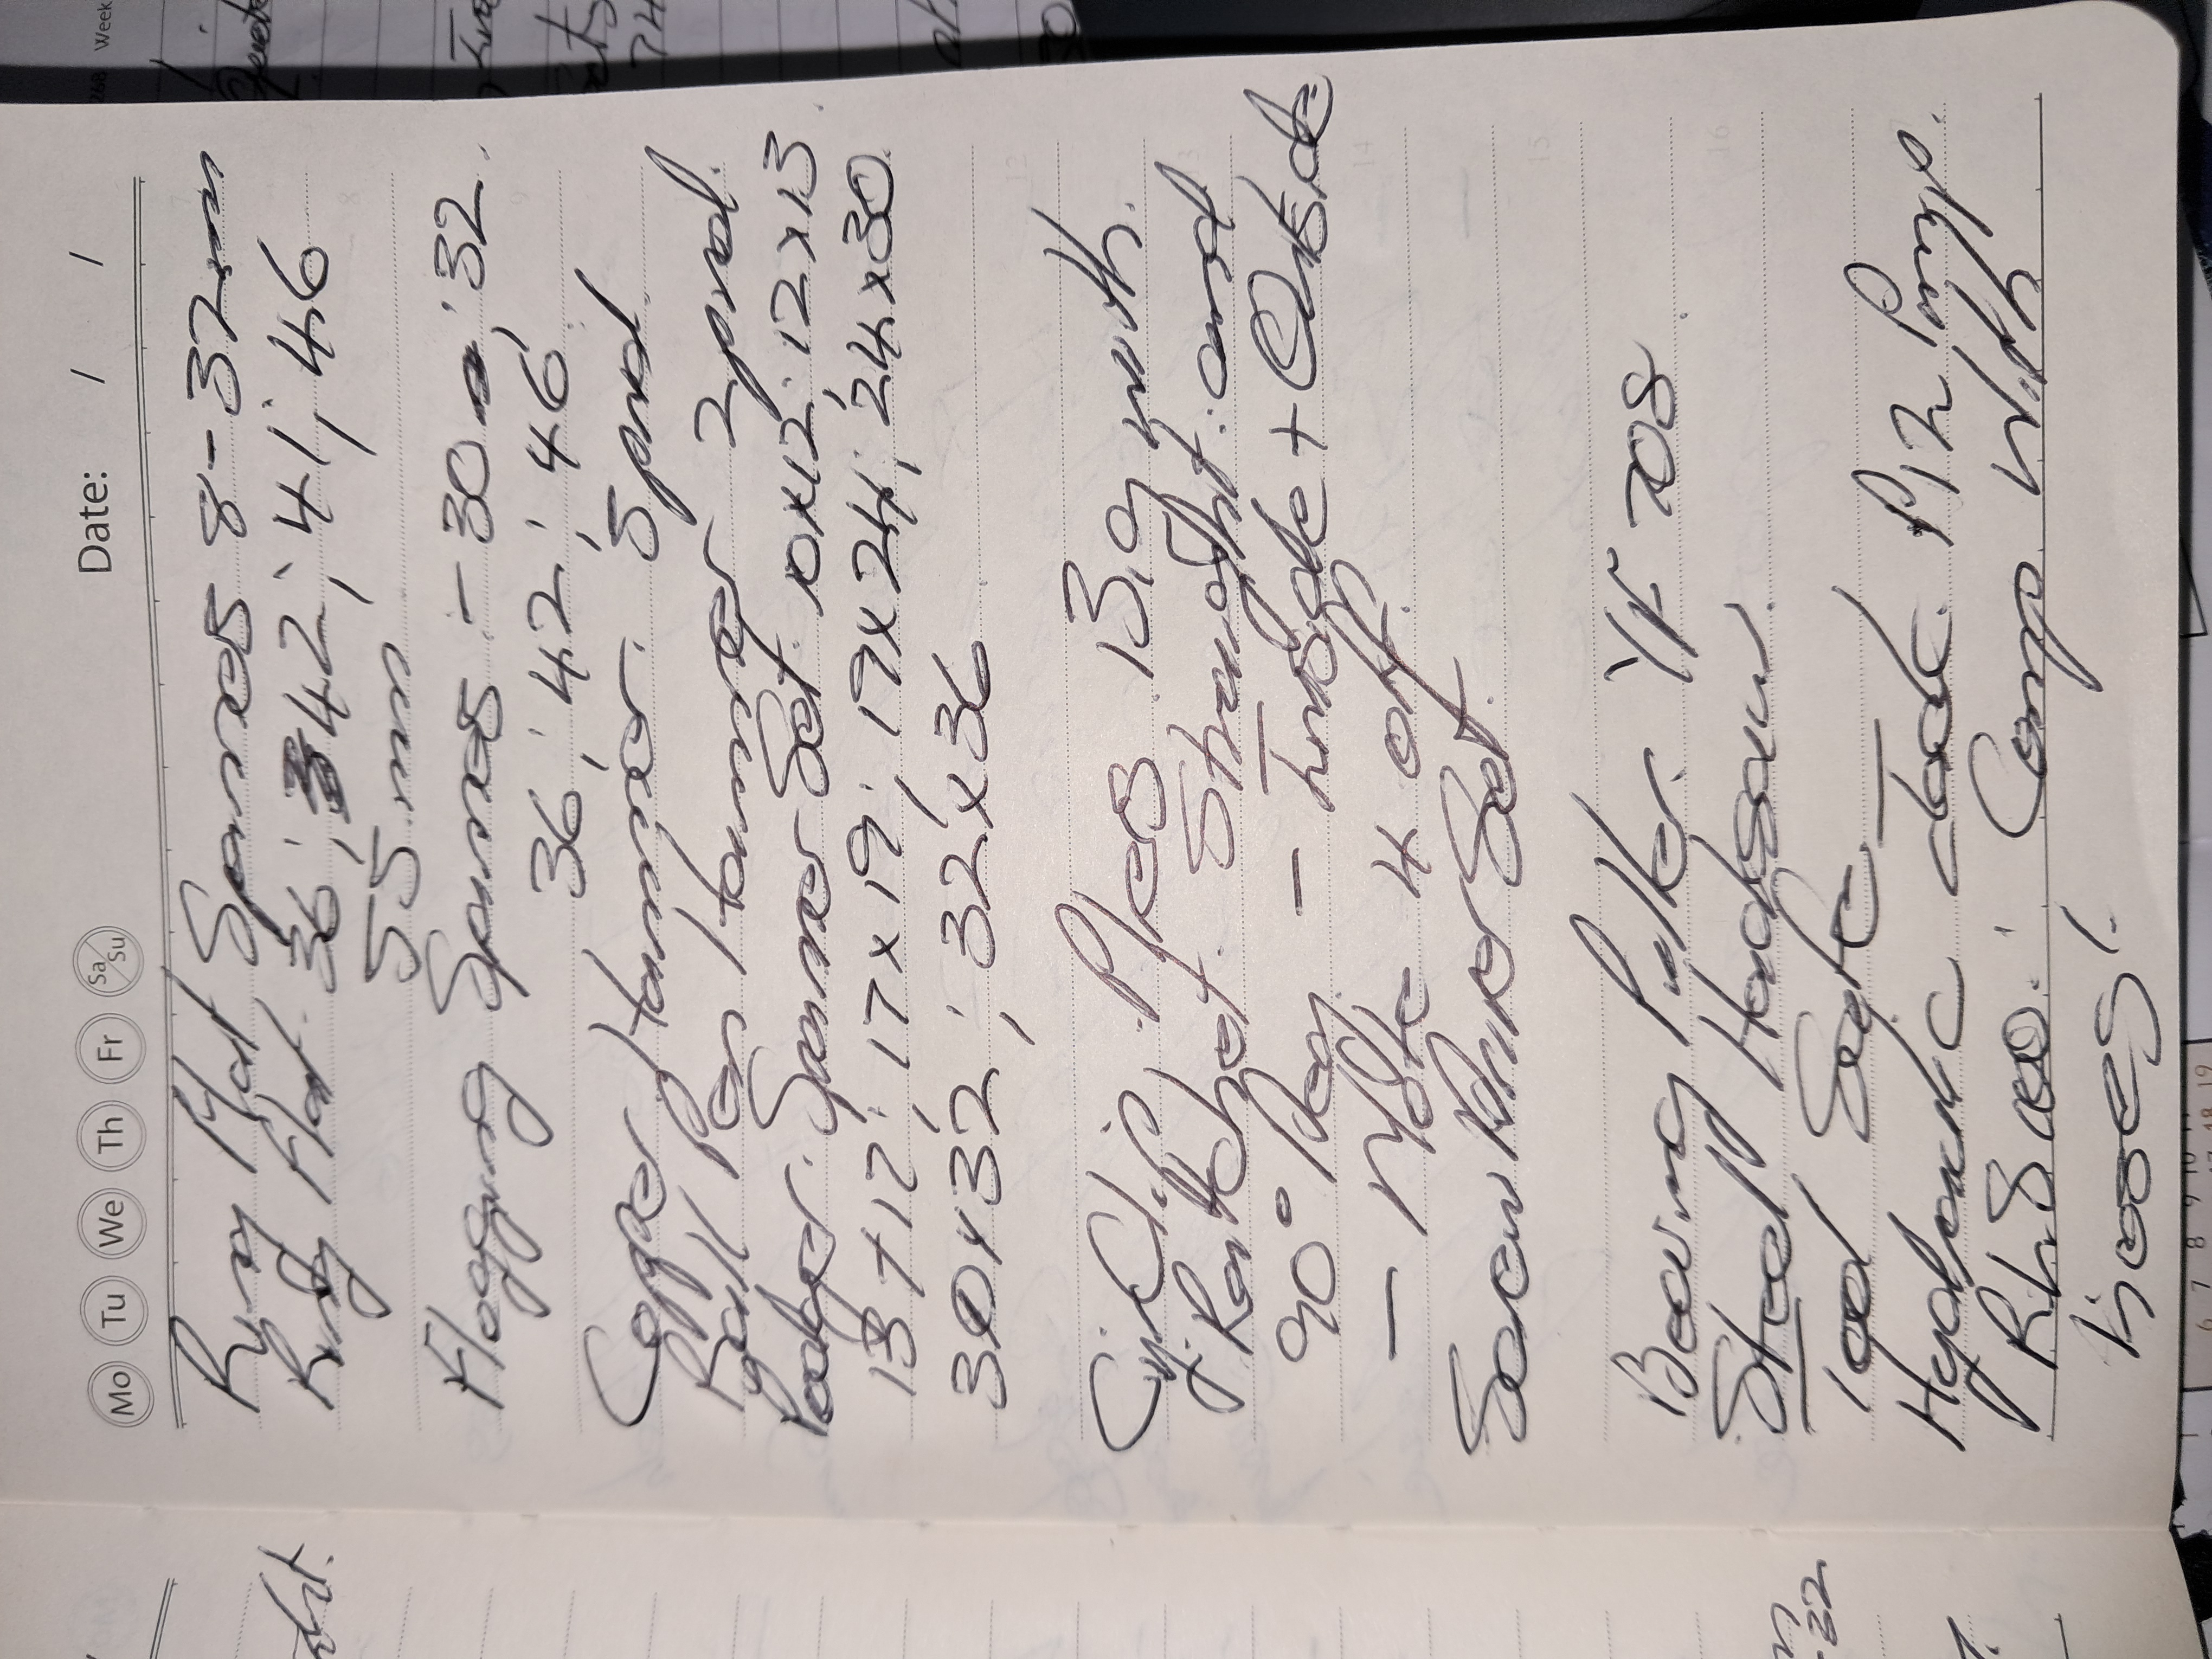 Mo Tu We Th Fr Sa/Su Date: / /
Ring Flat Spanners 8-32mm
Ring Flat 36; 42; 41; 46
55mm
Flogging Spanners :- 30; 32
36; 42; 46
Copper Hammer. 5 pnd.
Ball Pen Hammer 2 pnd.
Podger Spanner Set 10x12; 12x13
13x17; 17x19; 19x24; 24x30
30x32; 32x36
Circlip Pliers Big with
Ratchet. Straight and
90° Deg. - Inside + Outside
- Note 4 off.
Screw Driver Set.
Bearing Puller. YF 708
Steel Hacksaw.
Tool Safe
Hydraulic Jack. P12 Pump.
Comp With
hoses!